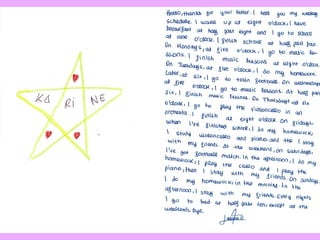 KA RI NE
Hello, thanks for your letter. I tell you my weekly
schedule. I wake up at eight o'clock, I have
breakfast at half past eight and I go to school
at nine o'clock. I finish school at half past four.
On Mondays, at five o'clock, I go to music le-
ssons. I finish music lessons at eight o'clock.
On Tuesdays, at five o'clock, I do my homework.
Later, at six, I go to train football. On Wednesdays
at five o'clock, I go to music lessons. At half past
six, I finish music lessons. On Thursdays at six
o'clock, I go to play the violoncello in an
orchestra. I finish at eight o'clock. On Fridays
when I've finished school, I do my homework,
I study violoncello and piano and the I stay
with my friends. At the weekend, on Saturdays,
I've got football match. In the afternoon, I do my
homework, I play the cello and I play the
piano, then I stay with my friends. On Sundays
I do my homework, in the morning. In the
afternoon, I stay with my friends. Every nights
I go to bed at half past ten except at the
weekends. Bye.